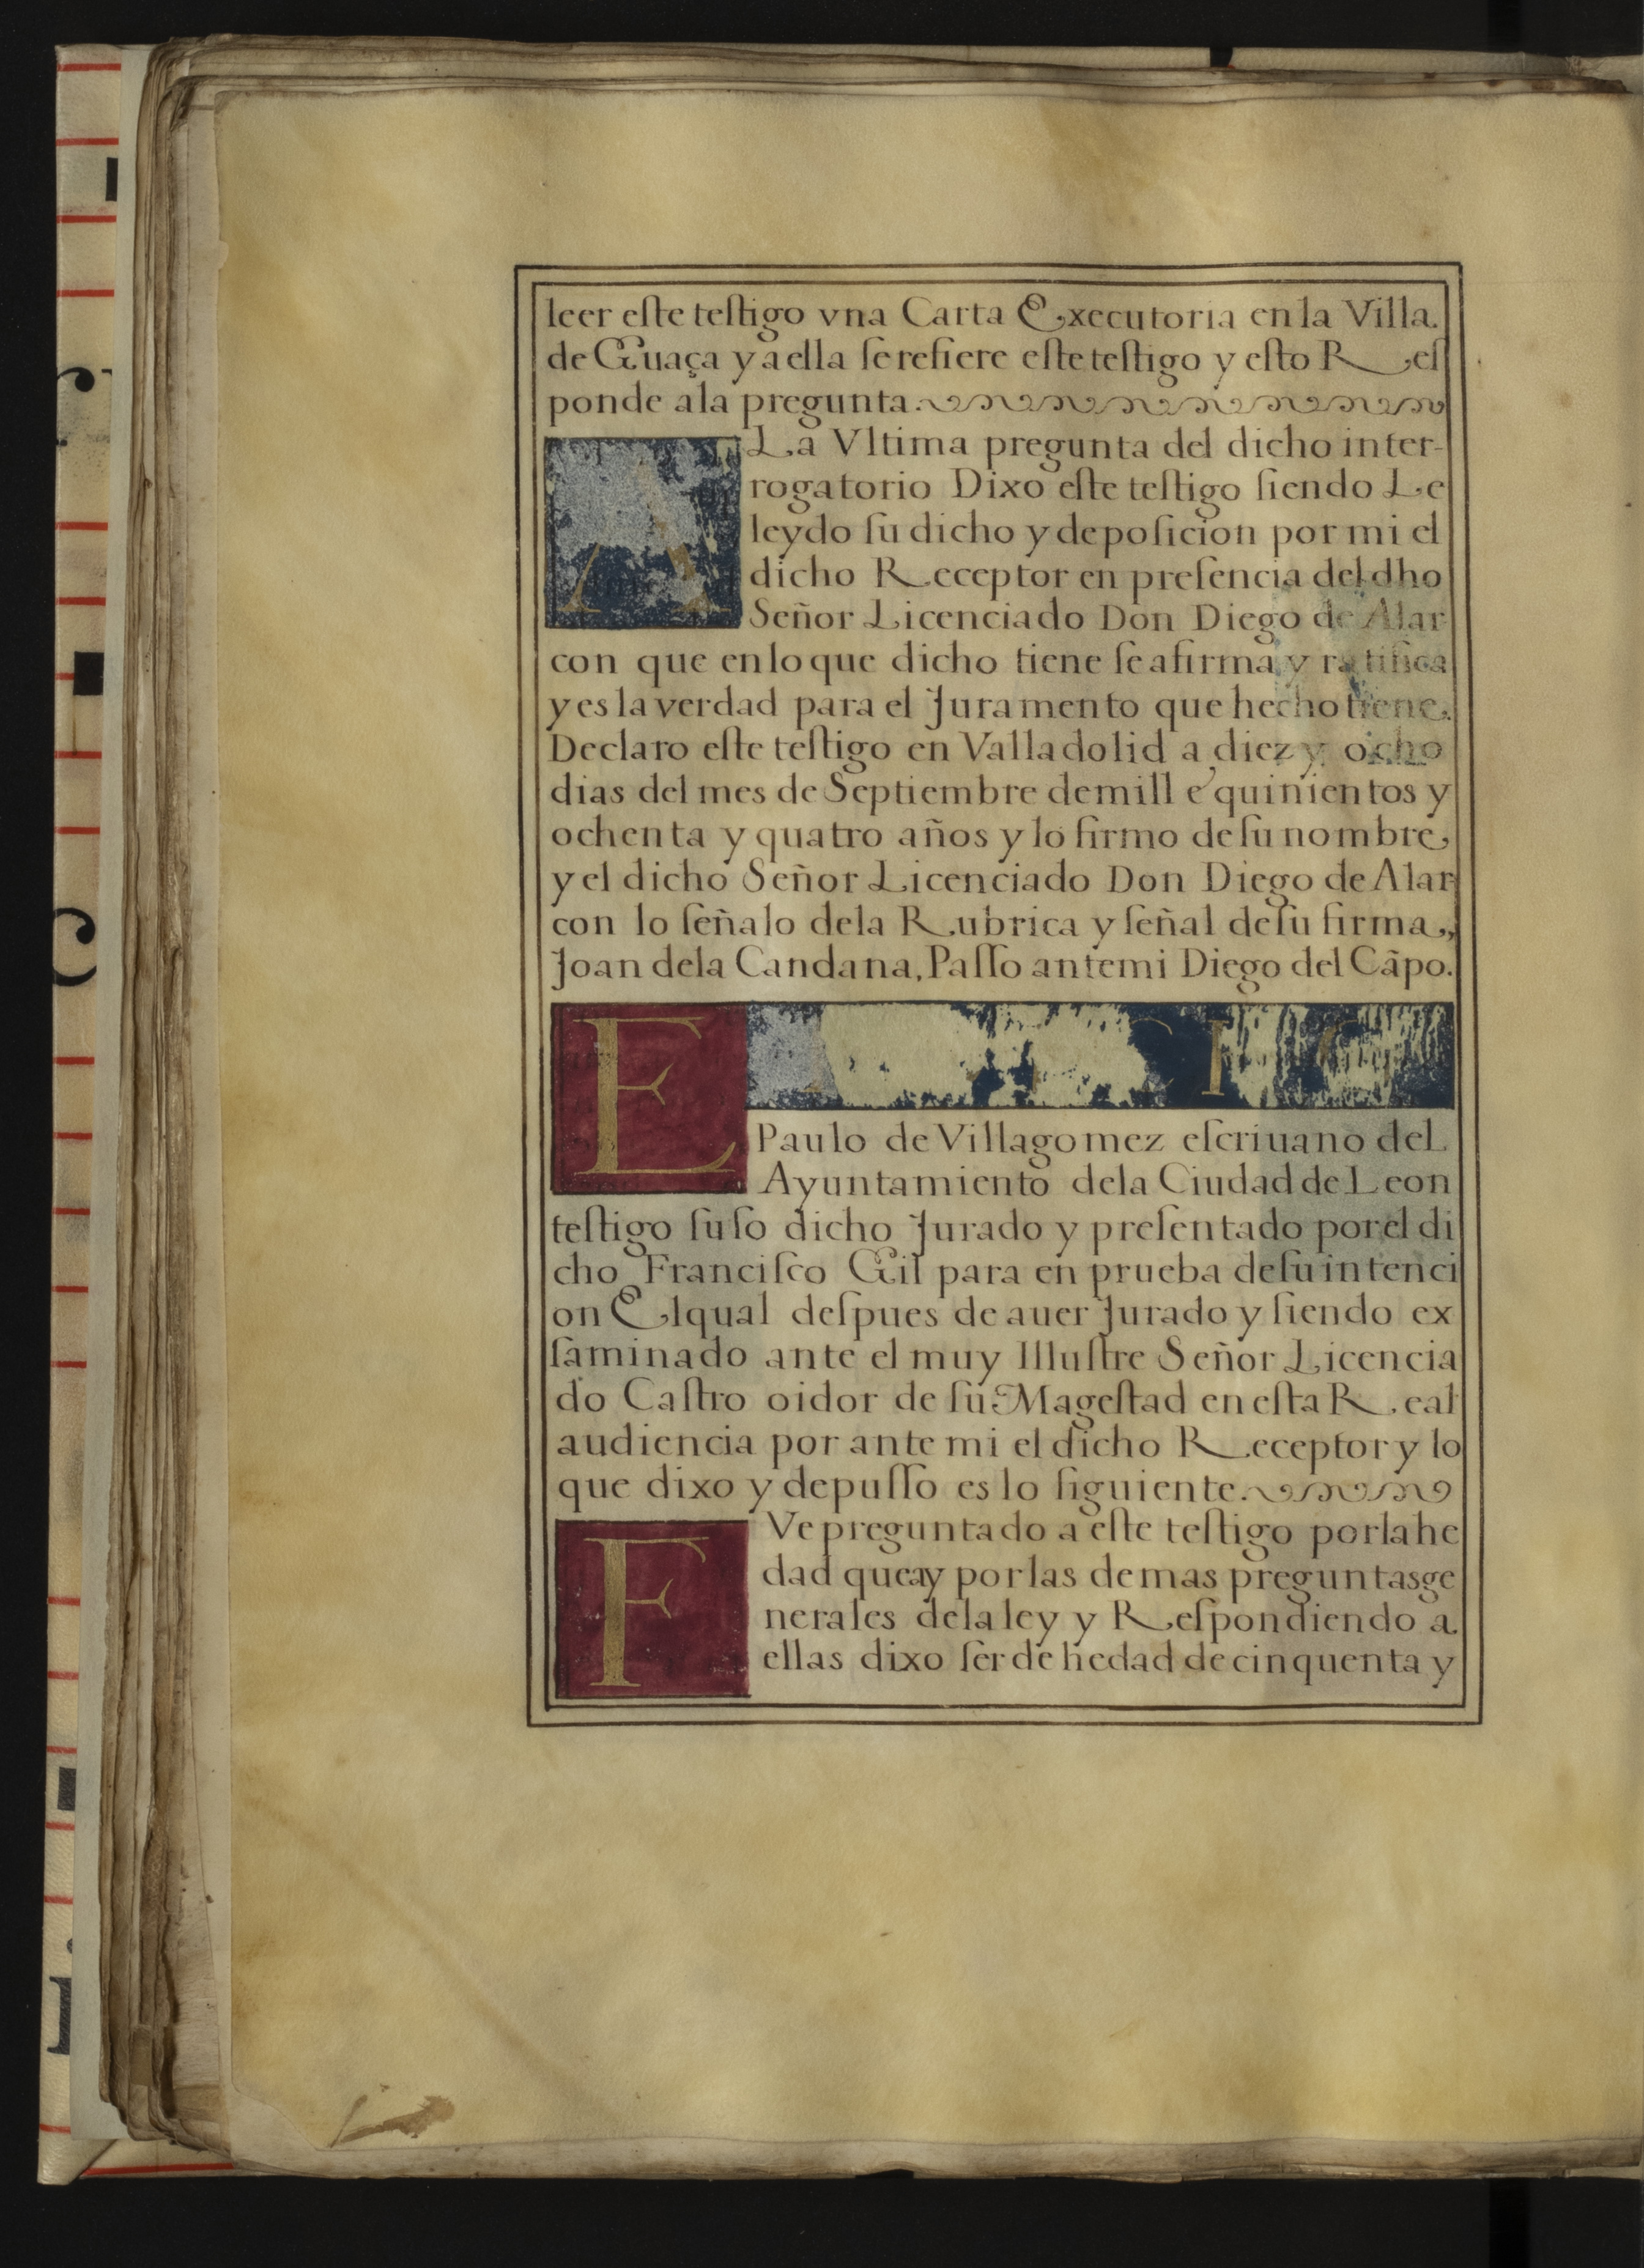 leer este testigo vna Carta Executoria en la Villa.
de Guaça y a ella se refiere este testigo y esto Res
ponde a la pregunta.
A La Vltima pregunta del dicho inter-
rogatorio Dixo este testigo siendo Le
leydo su dicho y deposicion por mi el
dicho Receptor en presencia del dho
Señor Licenciado Don Diego de Alar
con que en lo que dicho tiene se afirma y ratifica
y es la verdad para el Juramento que hecho tiene.
Declaro este testigo en Valladolid a diez y ocho
dias del mes de Septiembre de mill e quinientos y
ochenta y quatro años y lo firmo de su nombre,
y el dicho Señor Licenciado Don Diego de Alar
con lo señalo de la Rubrica y señal de su firma,,
Joan de la Candana, Passo ante mi Diego del Cãpo.
E
Paulo de Villagomez escriuano del
Ayuntamiento de la Ciudad de Leon
testigo suso dicho Jurado y presentado por el di
cho Francisco Gil para en prueba de su intenci
on El qual despues de auer Jurado y siendo ex
saminado ante el muy Illustre Señor Licencia
do Castro oidor de su Magestad en esta Real
audiencia por ante mi el dicho Receptor y lo
que dixo y depusso es lo siguiente.
FVe preguntado a este testigo por la he
dad que ay por las demas preguntas ge
nerales de la ley y Respondiendo a
ellas dixo ser de hedad de cinquenta y